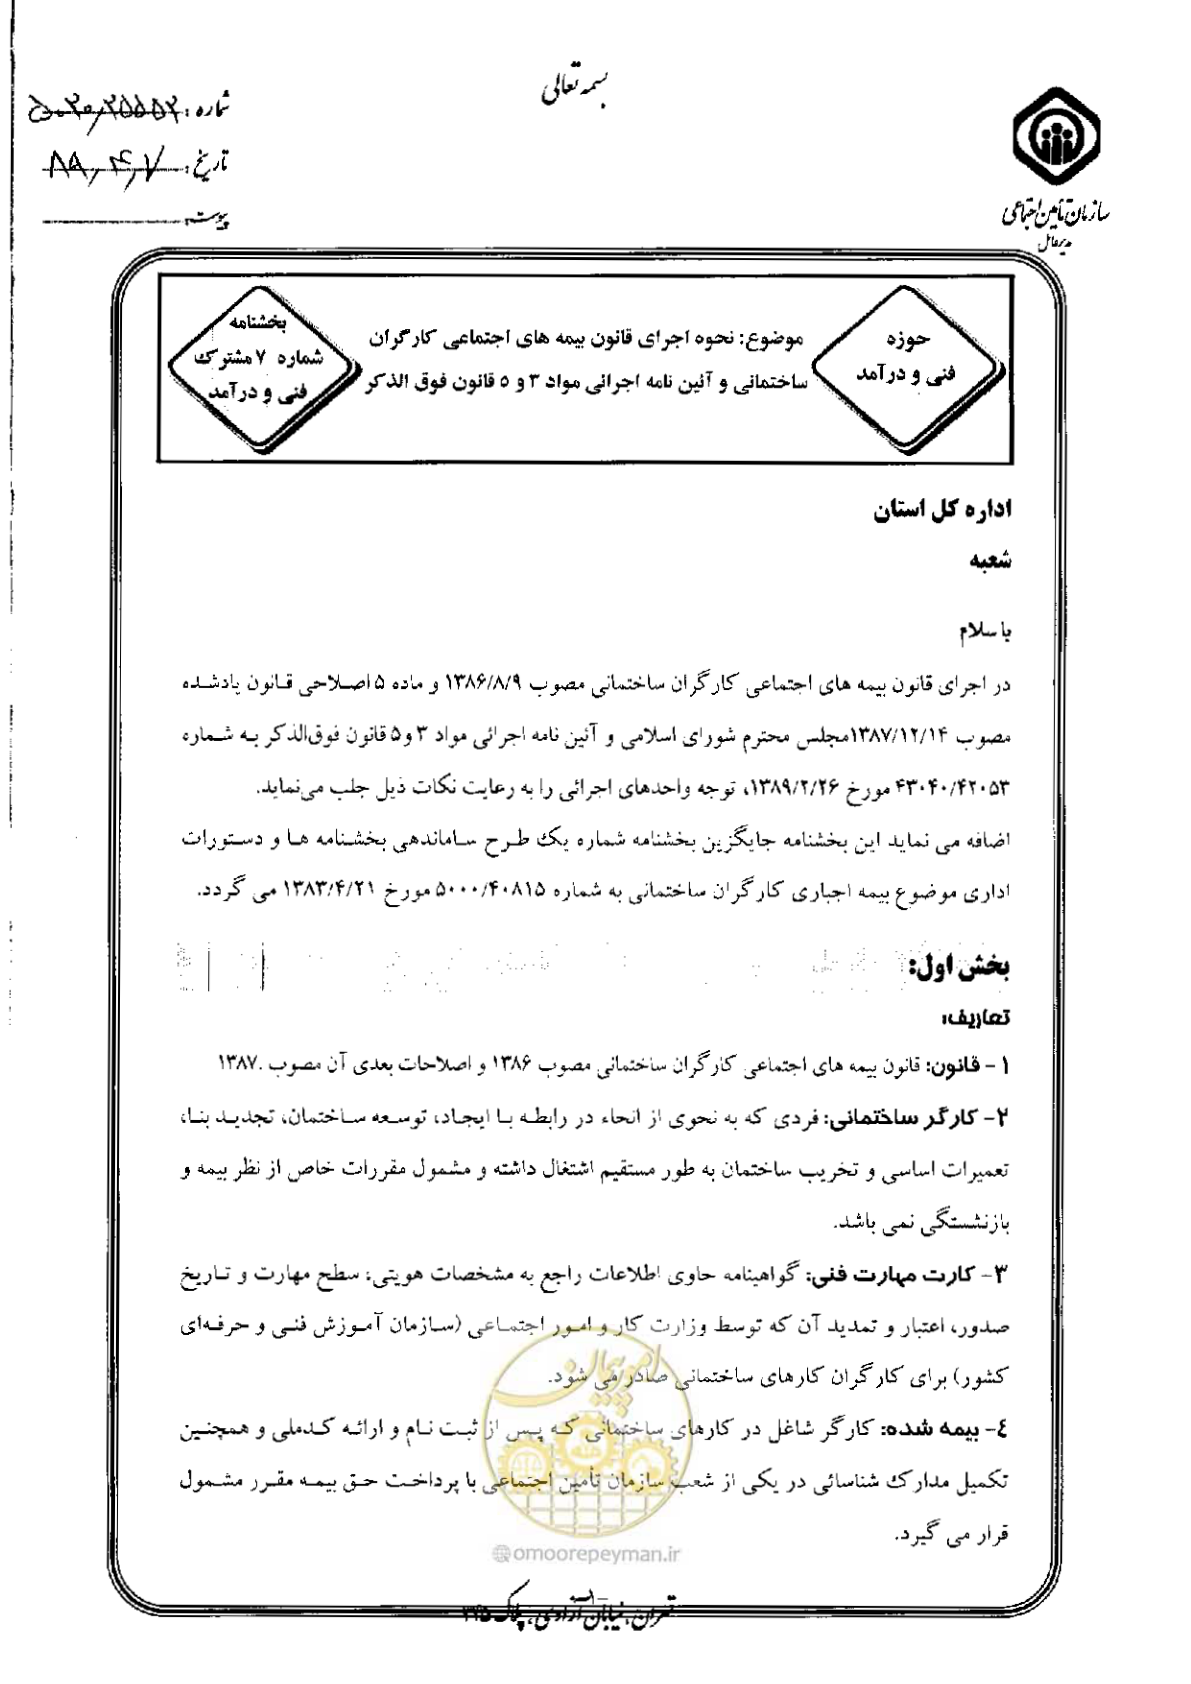 بسمه تعالی
شماره:
تاریخ: ۸۹٫۴٫۷
پیوست:
سازمان تأمین اجتماعی
مدیرعامل
حوزه
فنی و درآمد
موضوع: نحوه اجرای قانون بیمه های اجتماعی کارگران
ساختمانی و آئین نامه اجرائی مواد ۳ و ۵ قانون فوق الذکر
بخشنامه
شماره ۷ مشترک
فنی و درآمد
اداره کل استان
شعبه
با سلام
در اجرای قانون بیمه های اجتماعی کارگران ساختمانی مصوب ۱۳۸۶/۸/۹ و ماده ۵ اصلاحی قانون یادشده
مصوب ۱۳۸۷/۱۲/۱۴مجلس محترم شورای اسلامی و آئین نامه اجرائی مواد ۳ و۵ قانون فوق‌الذکر به شماره
۴۳۰۴۰/۴۲۰۵۳ مورخ ۱۳۸۹/۲/۲۶، توجه واحدهای اجرائی را به رعایت نکات ذیل جلب می‌نماید.
اضافه می نماید این بخشنامه جایگزین بخشنامه شماره یک طرح ساماندهی بخشنامه ها و دستورات
اداری موضوع بیمه اجباری کارگران ساختمانی به شماره ۵۰۰۰/۴۰۸۱۵ مورخ ۱۳۸۳/۴/۲۱ می گردد.
بخش اول:
تعاریف:
۱ - قانون: قانون بیمه های اجتماعی کارگران ساختمانی مصوب ۱۳۸۶ و اصلاحات بعدی آن مصوب .۱۳۸۷
۲- کارگر ساختمانی: فردی که به نحوی از انحاء در رابطه با ایجاد، توسعه ساختمان، تجدید بنا،
تعمیرات اساسی و تخریب ساختمان به طور مستقیم اشتغال داشته و مشمول مقررات خاص از نظر بیمه و
بازنشستگی نمی باشد.
۳- کارت مهارت فنی: گواهینامه حاوی اطلاعات راجع به مشخصات هویتی، سطح مهارت و تاریخ
صدور، اعتبار و تمدید آن که توسط وزارت کار و امور اجتماعی (سازمان آموزش فنی و حرفه‌ای
کشور) برای کارگران کارهای ساختمانی صادر می شود.
٤- بیمه شده: کارگر شاغل در کارهای ساختمانی که پس از ثبت نام و ارائه کدملی و همچنین
تکمیل مدارک شناسائی در یکی از شعب سازمان تأمین اجتماعی با پرداخت حق بیمه مقرر مشمول
قرار می گیرد.
امور پیمان
@omoorepeyman.ir
تهران، خیابان آزادی، پلاک ۳۴۵